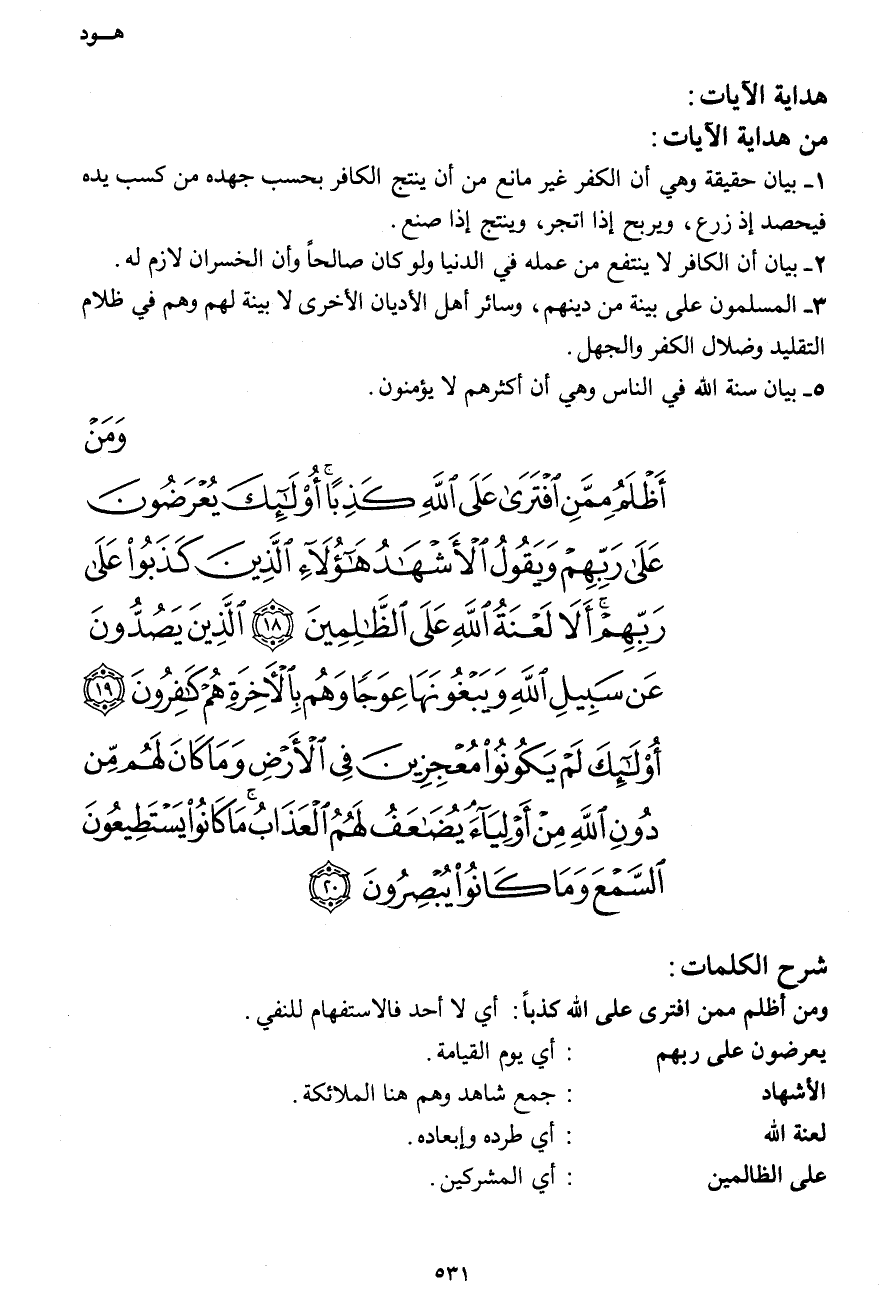 هــود
هداية الآيات :
من هداية الآيات :
١ـ بيان حقيقة وهي أن الكفر غير مانع من أن ينتج الكافر بحسب جهده من كسب يده
فيحصد إذ زرع ، ويربح إذا اتجر، وينتج إذا صنع .
٢ـ بيان أن الكافر لا ينتفع من عمله في الدنيا ولو كان صالحاً وأن الخسران لازم له .
٣ـ المسلمون على بينة من دينهم ، وسائر أهل الأديان الأخرى لا بينة لهم وهم في ظلام
التقليد وضلال الكفر والجهل .
٥ـ بيان سنة الله في الناس وهي أن أكثرهم لا يؤمنون .
وَمَنْ
أَظْلَمُ مِمَّنِ ٱفْتَرَىٰ عَلَى ٱللَّهِ كَذِبًا ۚ أُو۟لَٰٓئِكَ يُعْرَضُونَ
عَلَىٰ رَبِّهِمْ وَيَقُولُ ٱلْأَشْهَٰدُ هَٰٓؤُلَآءِ ٱلَّذِينَ كَذَبُوا۟ عَلَىٰ
رَبِّهِمْ ۚ أَلَا لَعْنَةُ ٱللَّهِ عَلَى ٱلظَّٰلِمِينَ ١٨ ٱلَّذِينَ يَصُدُّونَ
عَن سَبِيلِ ٱللَّهِ وَيَبْغُونَهَا عِوَجًا وَهُم بِٱلْأَخِرَةِ هُمْ كَٰفِرُونَ ١٩
أُو۟لَٰٓئِكَ لَمْ يَكُونُوا۟ مُعْجِزِينَ فِى ٱلْأَرْضِ وَمَا كَانَ لَهُم مِّن
دُونِ ٱللَّهِ مِنْ أَوْلِيَآءَ ۘ يُضَٰعَفُ لَهُمُ ٱلْعَذَابُ ۚ مَا كَانُوا۟ يَسْتَطِيعُونَ
ٱلسَّمْعَ وَمَا كَانُوا۟ يُبْصِرُونَ ٢٠
شرح الكلمات :
ومن أظلم ممن افترى على الله كذباً : أي لا أحد فالاستفهام للنفي .
يعرضون على ربهم : أي يوم القيامة .
الأشهاد : جمع شاهد وهم هنا الملائكة .
لعنة الله : أي طرده وإبعاده .
على الظالمين : أي المشركين .
٥٣١